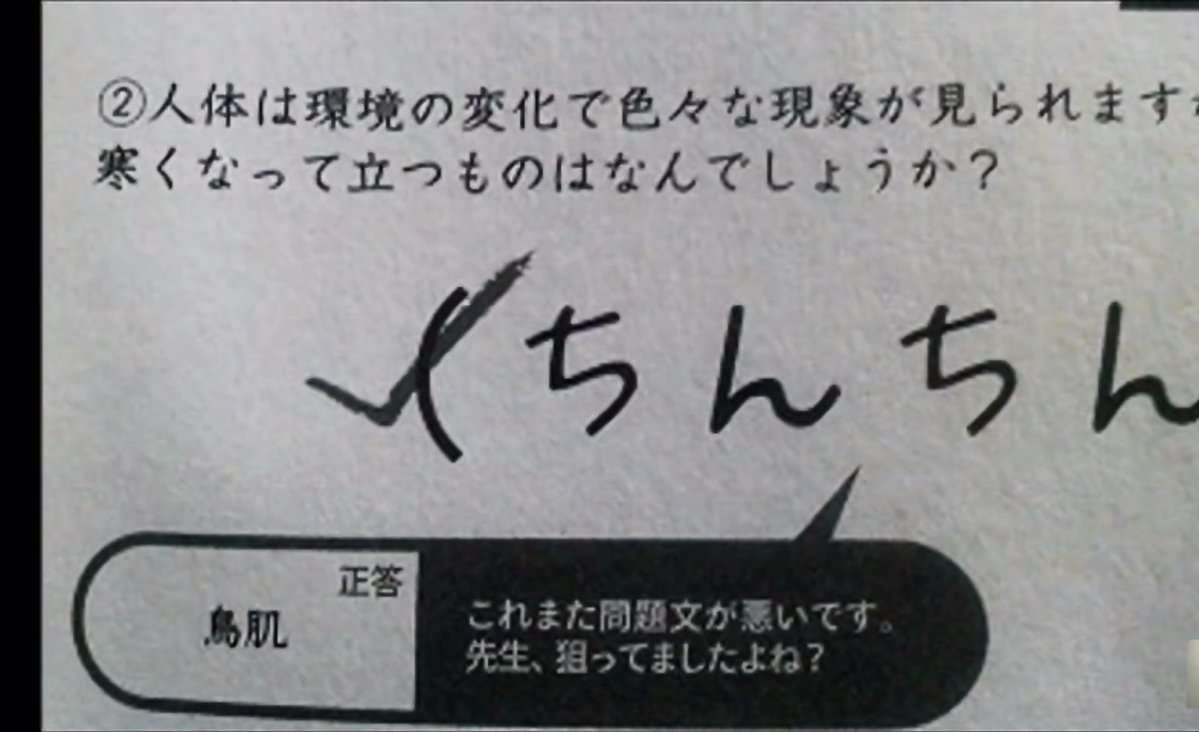 ②人体は環境の変化で色々な現象が見られます
寒くなって立つものはなんでしょうか？
(ちんちん
正答
鳥肌
これまた問題文が悪いです。
先生、狙ってましたよね？